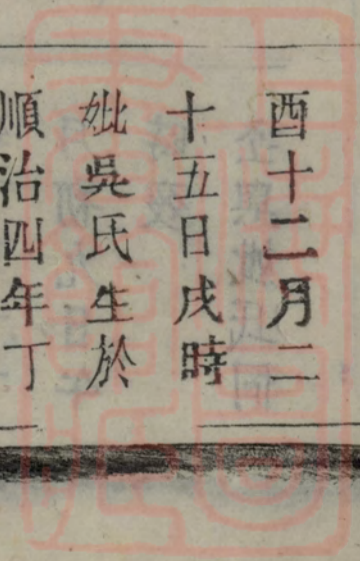 酉十二月二
十五日戌時
妣吳氏生於
順治四年丁